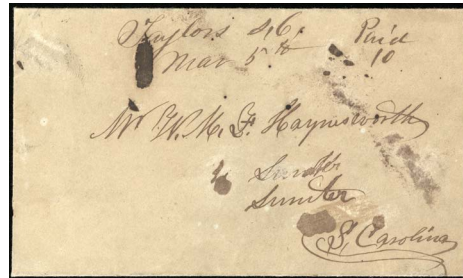 Taylors S,C, Paid
Mar 5th 10
Mr W. M. F. Haynesworth
Sumter
Sumter
S, Carolina